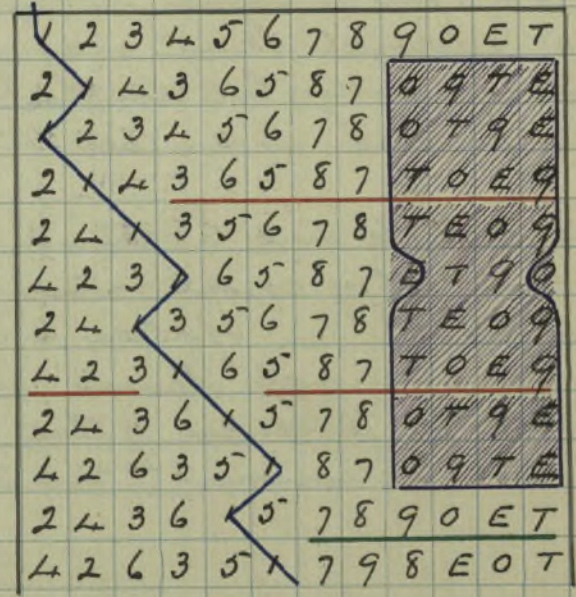 1 2 3 4 5 6 7 8 9 0 E T
2 1 4 3 6 5 8 7 0 9 T E
1 2 3 4 5 6 7 8 0 T 9 E
2 1 4 3 6 5 8 7 T 0 E 9
2 4 1 3 5 6 7 8 T E 0 9
4 2 3 1 6 5 8 7 E T 9 0
2 4 1 3 5 6 7 8 T E 0 9
4 2 3 1 6 5 8 7 T 0 E 9
2 4 3 6 1 5 7 8 0 T 9 E
4 2 6 3 5 1 8 7 0 9 T E
2 4 3 6 1 5 7 8 9 0 E T
4 2 6 3 5 1 7 9 8 E 0 T